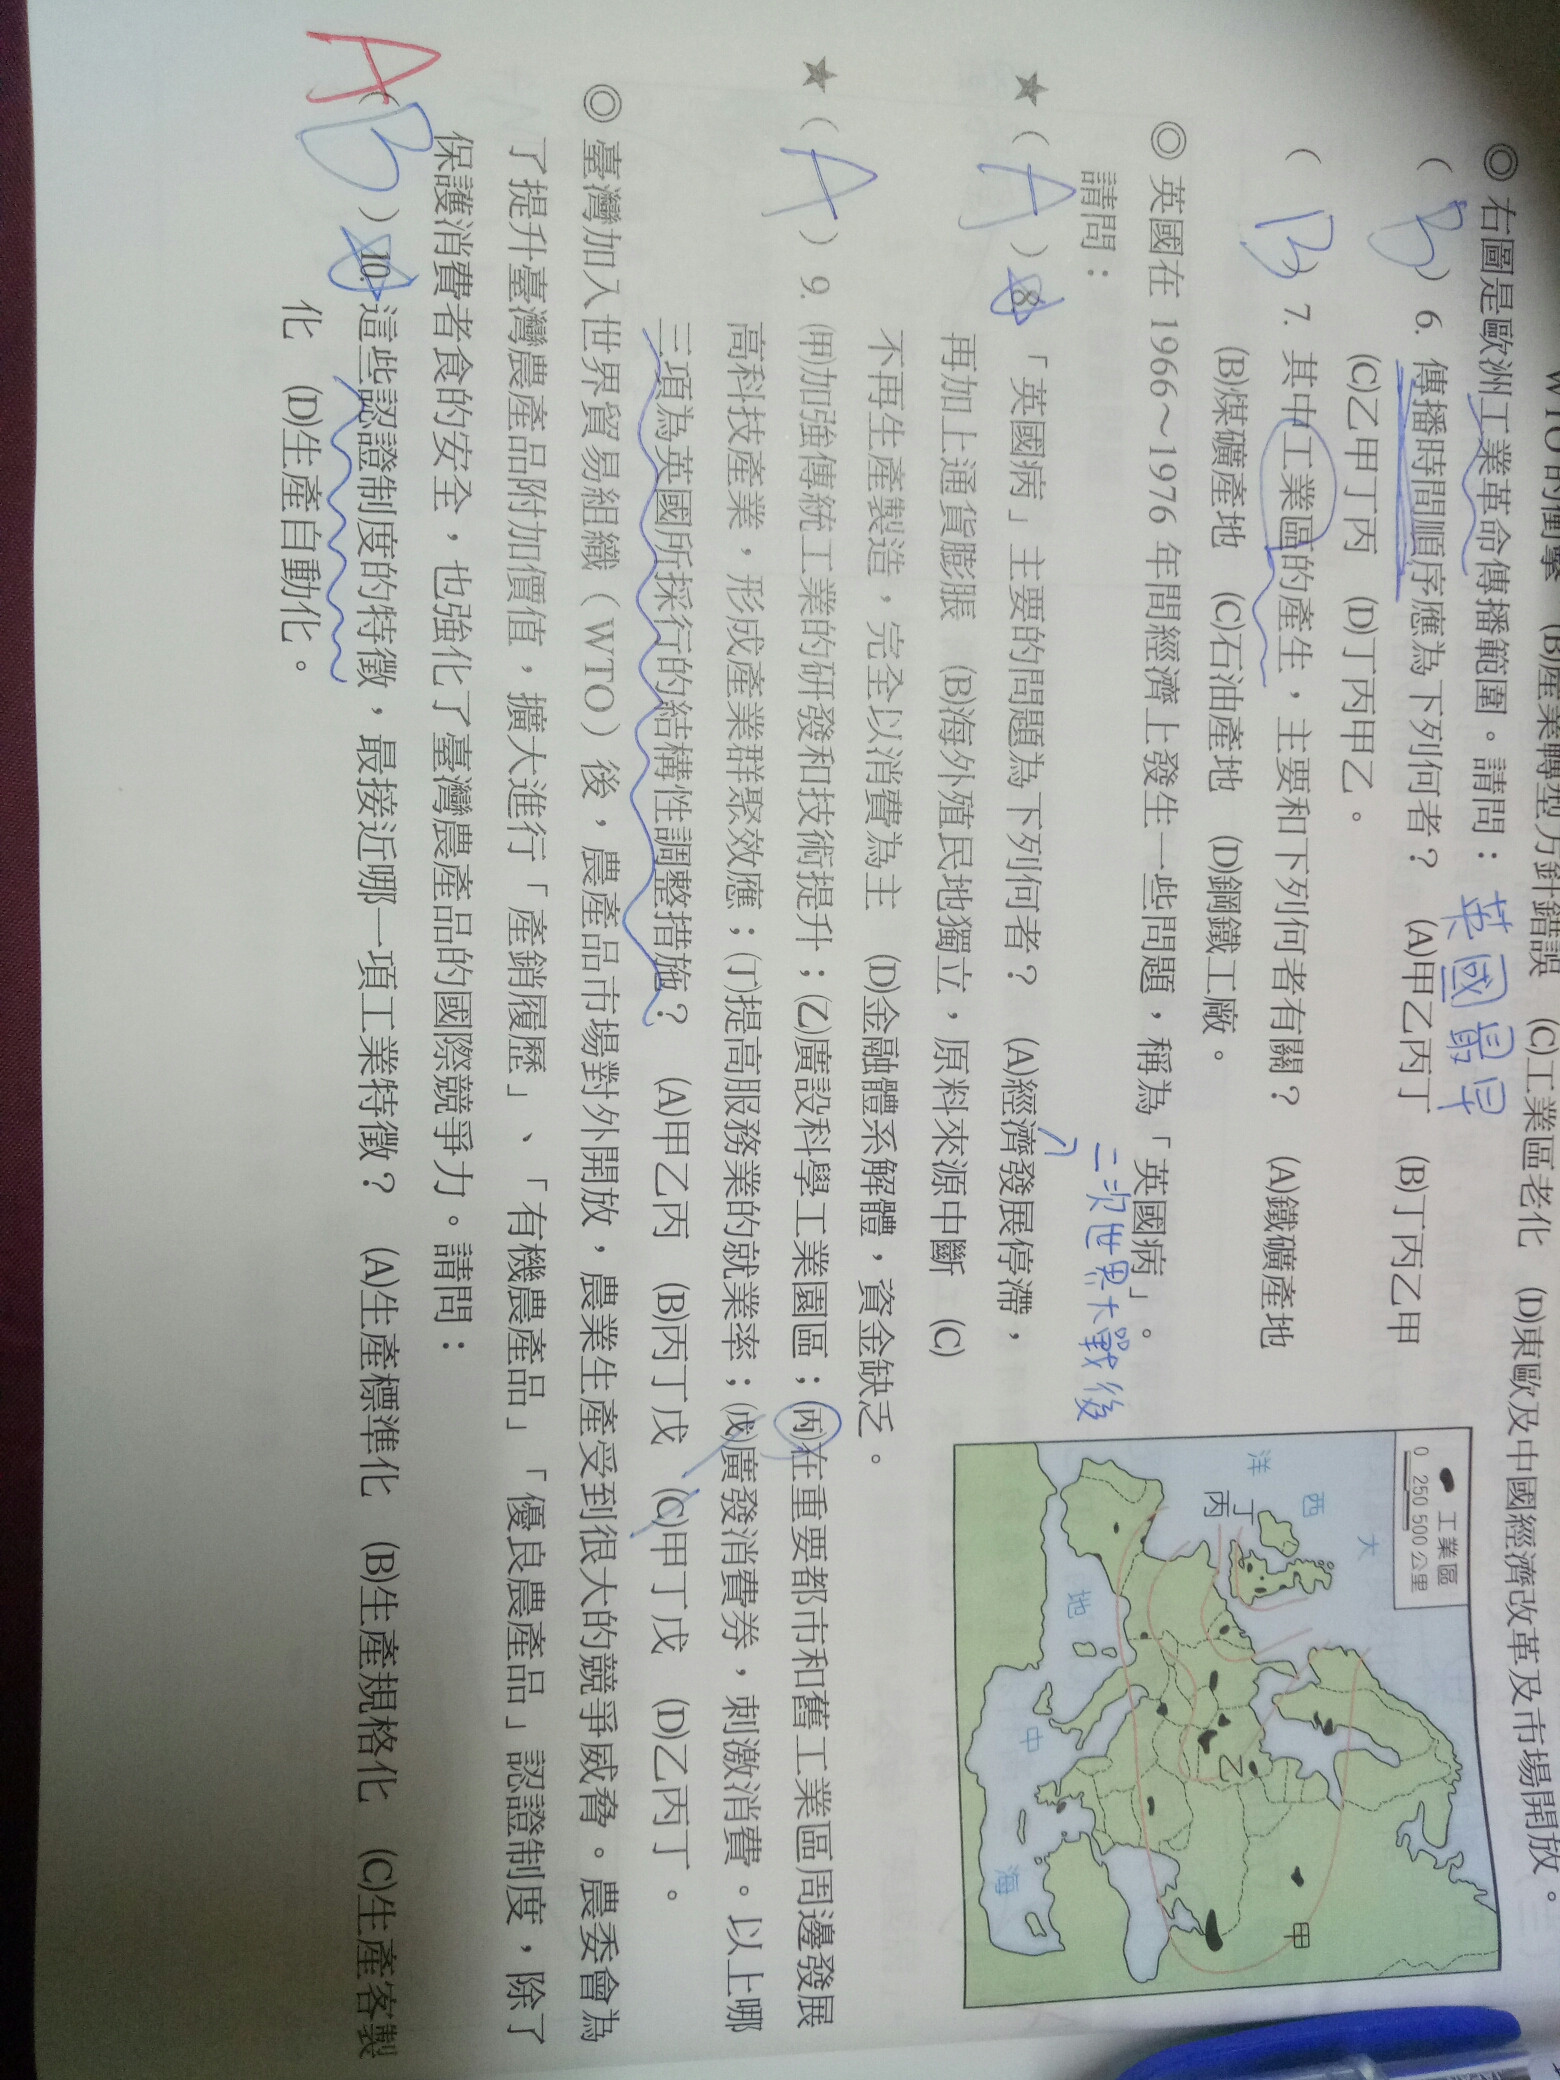 WTO的衝擊 (B)產業轉型方針錯誤 (C)工業區老化 (D)東歐及中國經濟改革及市場開放。
◎右圖是歐洲工業革命傳播範圍。請問：
英國最早
( B ) 6. 傳播時間順序應為下列何者？ (A)甲乙丙丁 (B)丁丙乙甲
(C)乙甲丁丙 (D)丁丙甲乙。
( B ) 7. 其中工業區的產生，主要和下列何者有關？ (A)鐵礦產地
(B)煤礦產地 (C)石油產地 (D)鋼鐵工廠。
◎英國在 1966～1976 年間經濟上發生一些問題，稱為「英國病」。
請問：
二次世界大戰後
★ ( A ) 8. 「英國病」主要的問題為下列何者？ (A)經濟發展停滯，
再加上通貨膨脹 (B)海外殖民地獨立，原料來源中斷 (C)
不再生產製造，完全以消費為主 (D)金融體系解體，資金缺乏。
★ ( A ) 9. (甲)加強傳統工業的研發和技術提升；(乙)廣設科學工業園區；(丙)在重要都市和舊工業區周邊發展
高科技產業，形成產業群聚效應；(丁)提高服務業的就業率；(戊)廣發消費券，刺激消費。以上哪
三項為英國所採行的結構性調整措施？ (A)甲乙丙 (B)丙丁戊 (C)甲丁戊 (D)乙丙丁。
◎臺灣加入世界貿易組織（WTO）後，農產品市場對外開放，農業生產受到很大的競爭威脅。農委會為
了提升臺灣農產品附加價值，擴大進行「產銷履歷」、「有機農產品」「優良農產品」認證制度，除了
保護消費者食的安全，也強化了臺灣農產品的國際競爭力。請問：
A ( B ) 10. 這些認證制度的特徵，最接近哪一項工業特徵？ (A)生產標準化 (B)生產規格化 (C)生產客製
化 (D)生產自動化。
工業區
0 250 500公里
大
西
洋
丁
丙
乙
甲
地
中
海